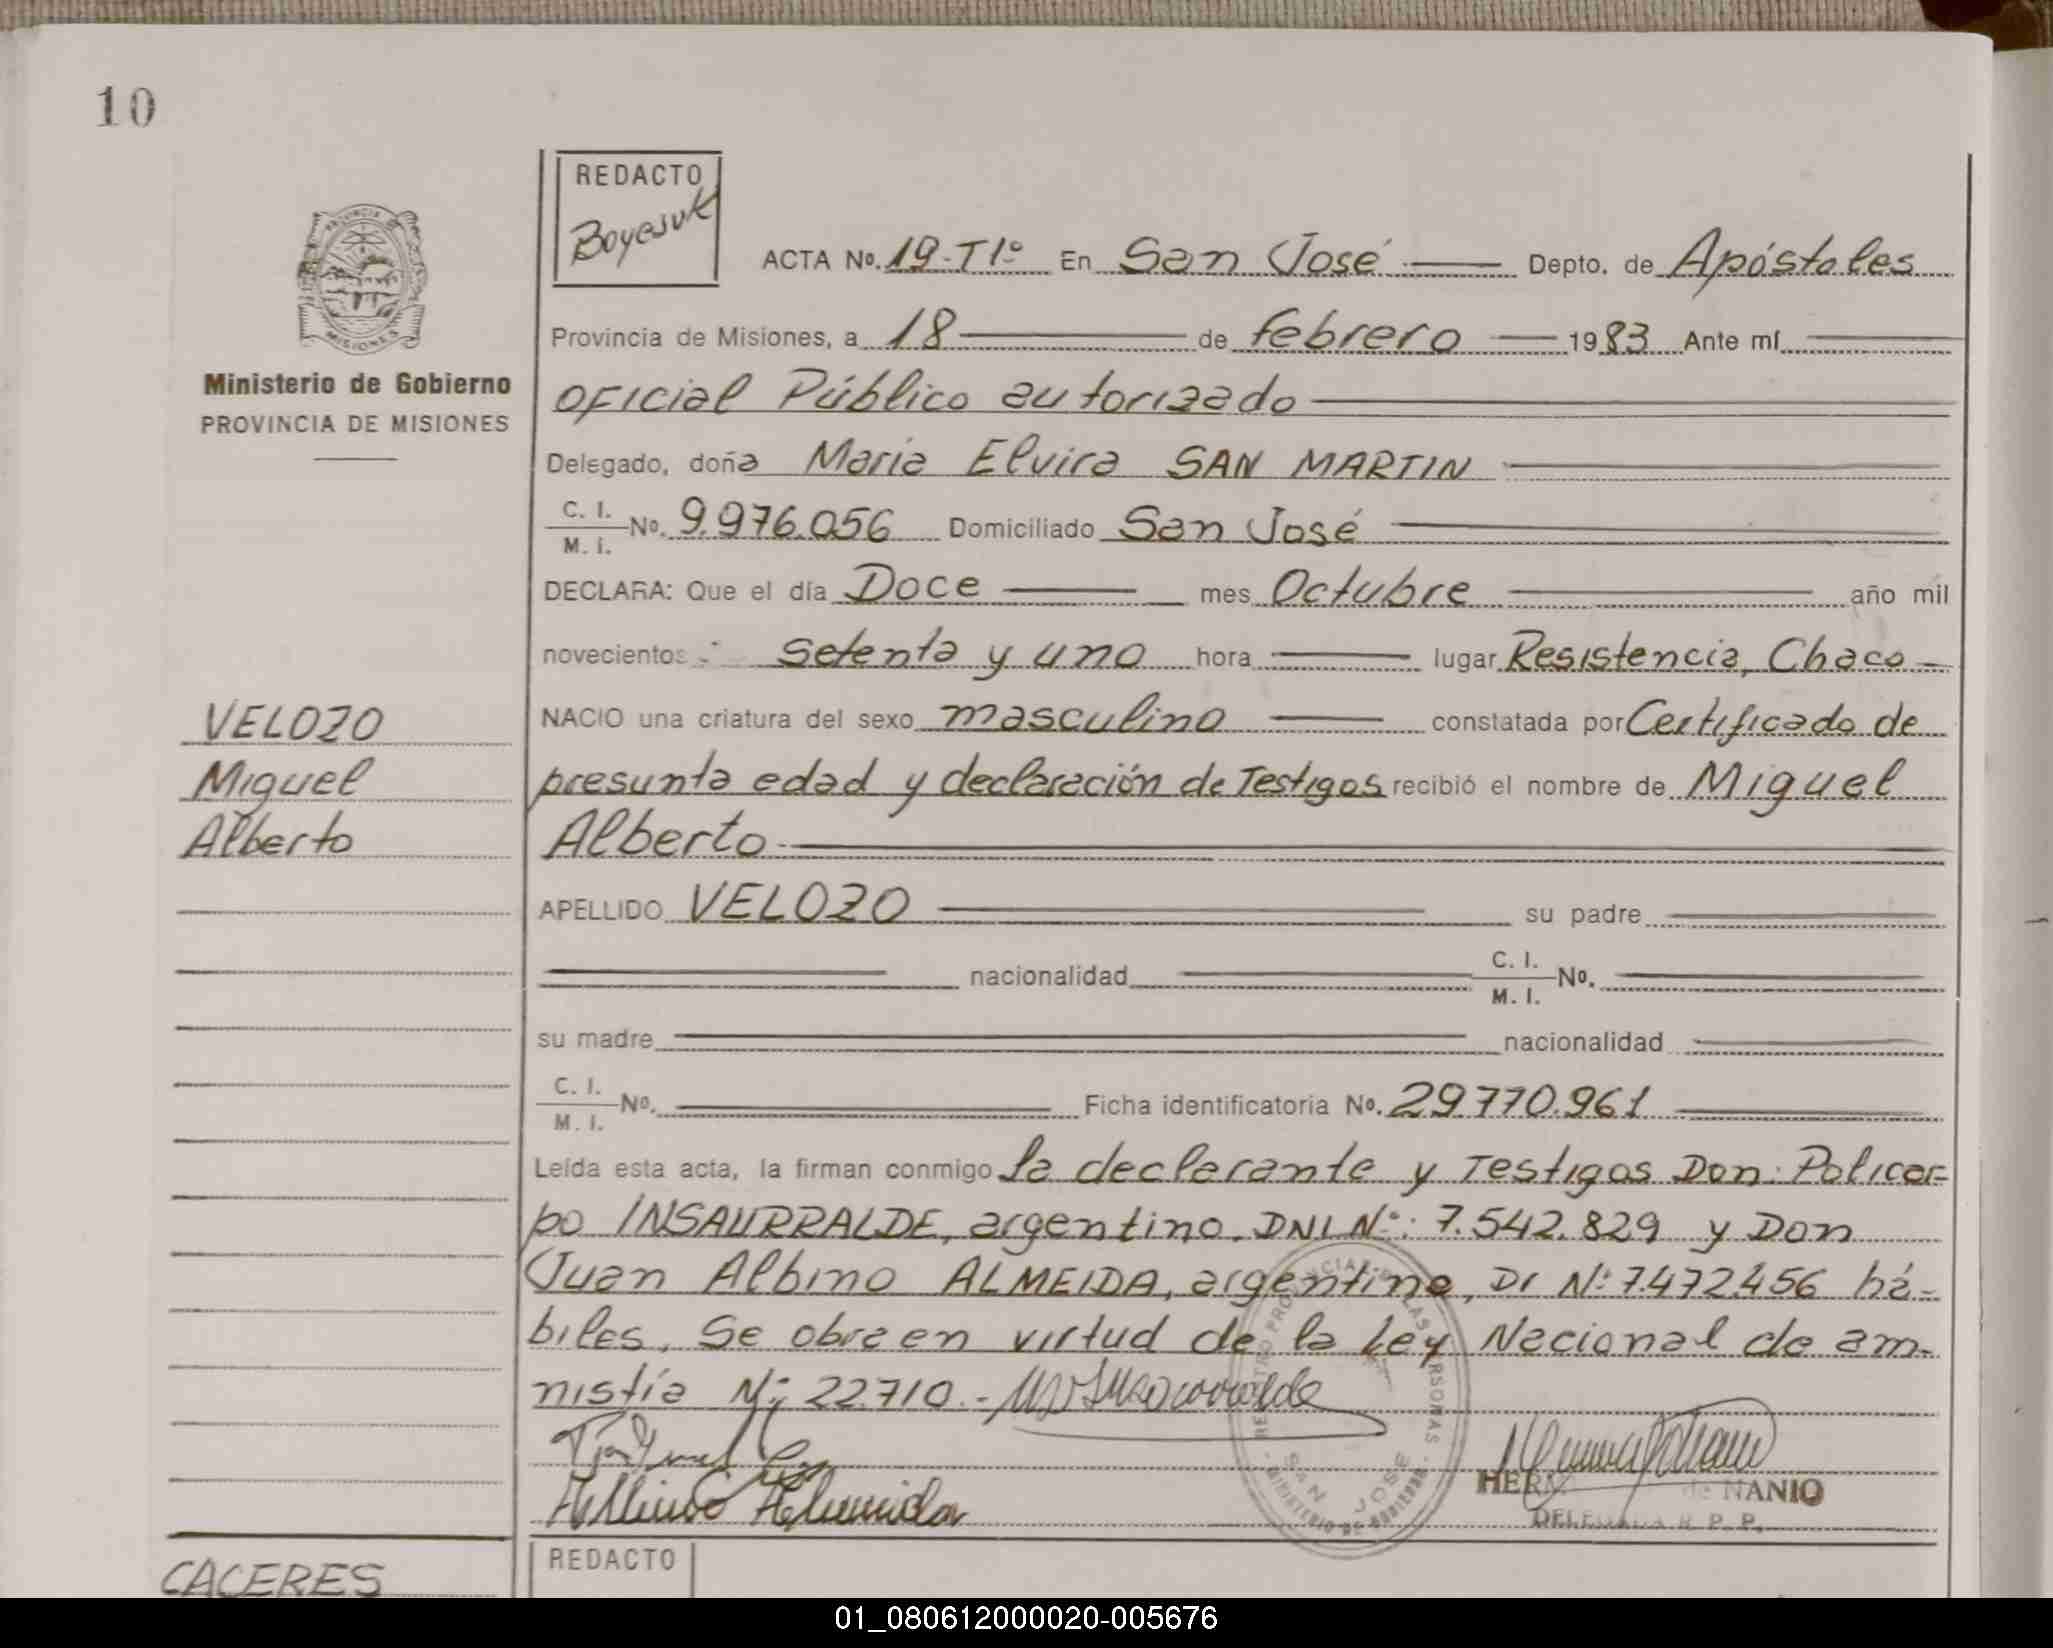 10
REDACTO
Boyesuk
ACTA No. 19-T1º En San José Depto. de Apóstoles
Provincia de Misiones, a 18 de febrero 1983 Ante mí
Ministerio de Gobierno
PROVINCIA DE MISIONES
MISIONES
Oficial Público autorizado
Delegado, doña María Elvira SAN MARTIN
C. I. / M. I. No. 9.976.056 Domiciliado San José
DECLARA: Que el día Doce mes Octubre año mil
novecientos setenta y uno hora lugar Resistencia, Chaco
VELOZO
NACIO una criatura del sexo masculino constatada por Certificado de
Miguel
presunta edad y declaración de Testigos recibió el nombre de Miguel
Alberto
Alberto
APELLIDO VELOZO su padre
nacionalidad C. I. / M. I. No.
su madre nacionalidad
C. I. / M. I. No. Ficha identificatoria No. 29.770.961
Leída esta acta, la firman conmigo la declarante y Testigos Don: Policar=
po INSAURRALDE, argentino. DNI. Nº: 7.542.829 y Don
Juan Albino ALMEIDA, argentino, DI Nº: 7.472.456 há-
biles. Se obra en virtud de la Ley Nacional de am-
nistía Nº: 22.710.-
REGISTRO PROVINCIAL DE LAS PERSONAS
SAN JOSE
MINISTERIO DE GOBIERNO
HERM de NANIO
DELEGADA R. P. P.
CACERES
REDACTO
01_080612000020-005676